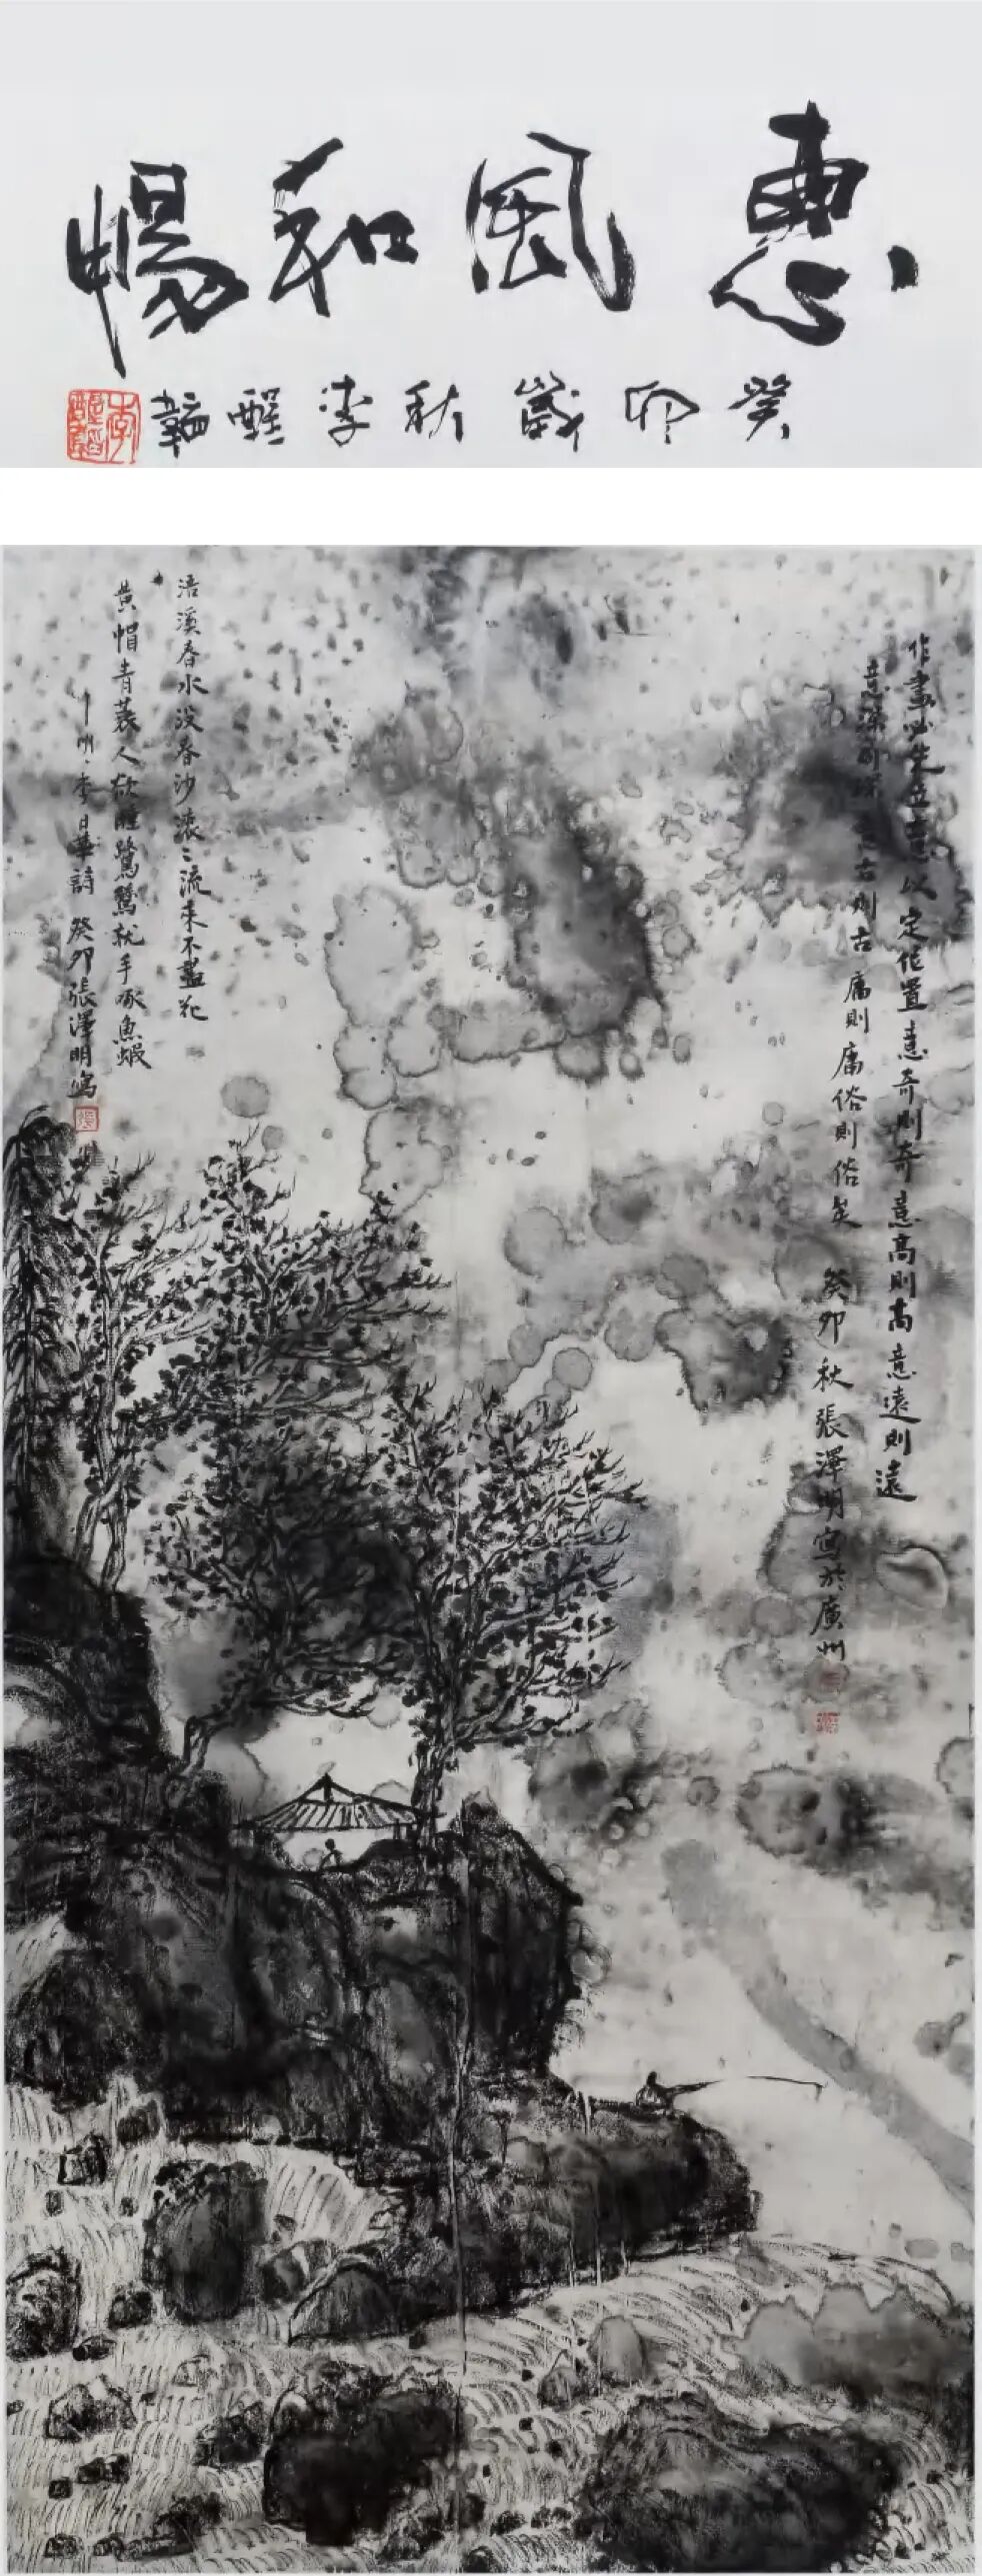 惠風和暢
癸卯歲秋李醒韜
作畫必先立意以定位置意奇則奇意高則高意遠則遠
意深則深意古則古庸則庸俗則俗矣
癸卯秋張澤明寫於廣州
浯溪春水没春沙滚滚流来不盡花
黄帽青蓑人欲睡鷺鷥就手啄魚蝦
明李日華詩癸卯張澤明寫